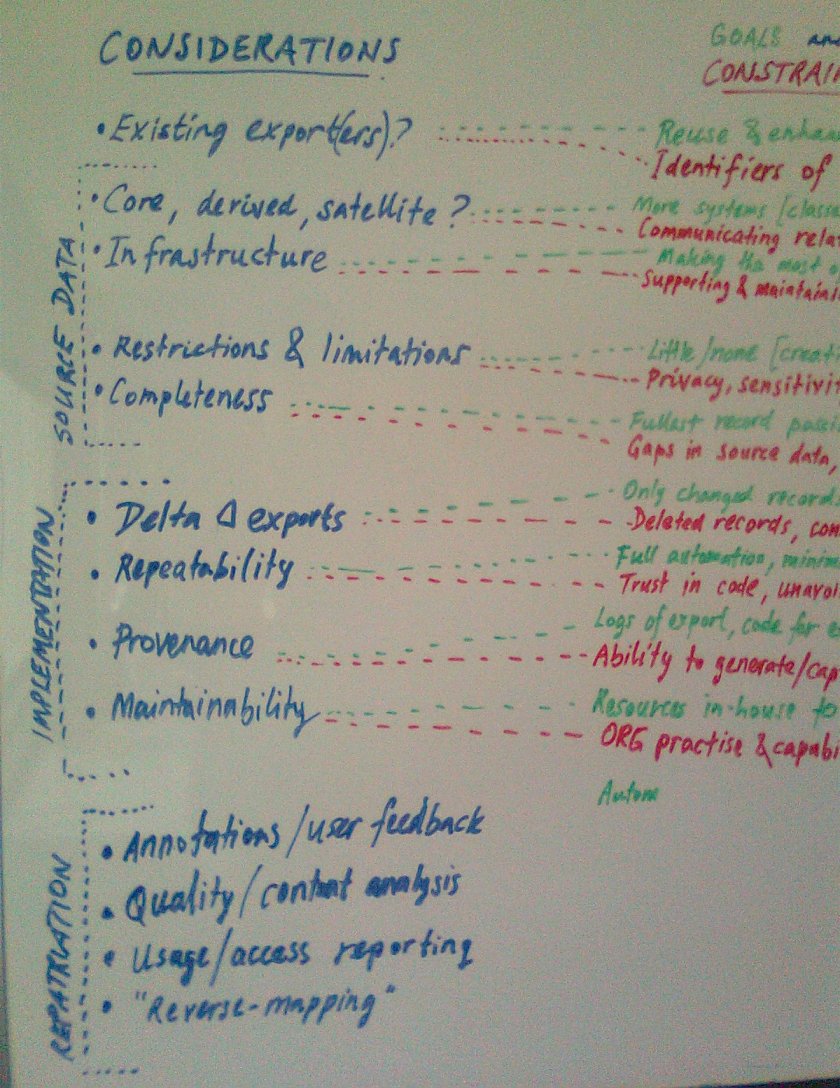 CONSIDERATIONS
GOALS
CONSTRAI
• Existing export(ers)?
Reuse & enhan
Identifiers of
SOURCE DATA
• Core, derived, satellite?
More systems [classe
Communicating rela
• Infrastructure
Making the most
Supporting & maintain
• Restrictions & limitations
Little/none [creati
Privacy, sensitivit
• Completeness
Fullest record possi
Gaps in source data,
IMPLEMENTATION
• Delta Δ exports
Only changed record
Deleted records, con
• Repeatability
Full automation, minim
Trust in code, unavoi
• Provenance
Logs of export, code for e
Ability to generate/cap
• Maintainability
Resources in-house to
ORG practise & capabi
Autom
REPATRIATION
• Annotations/user feedback
• Quality/content analysis
• Usage/access reporting
• "Reverse-mapping"